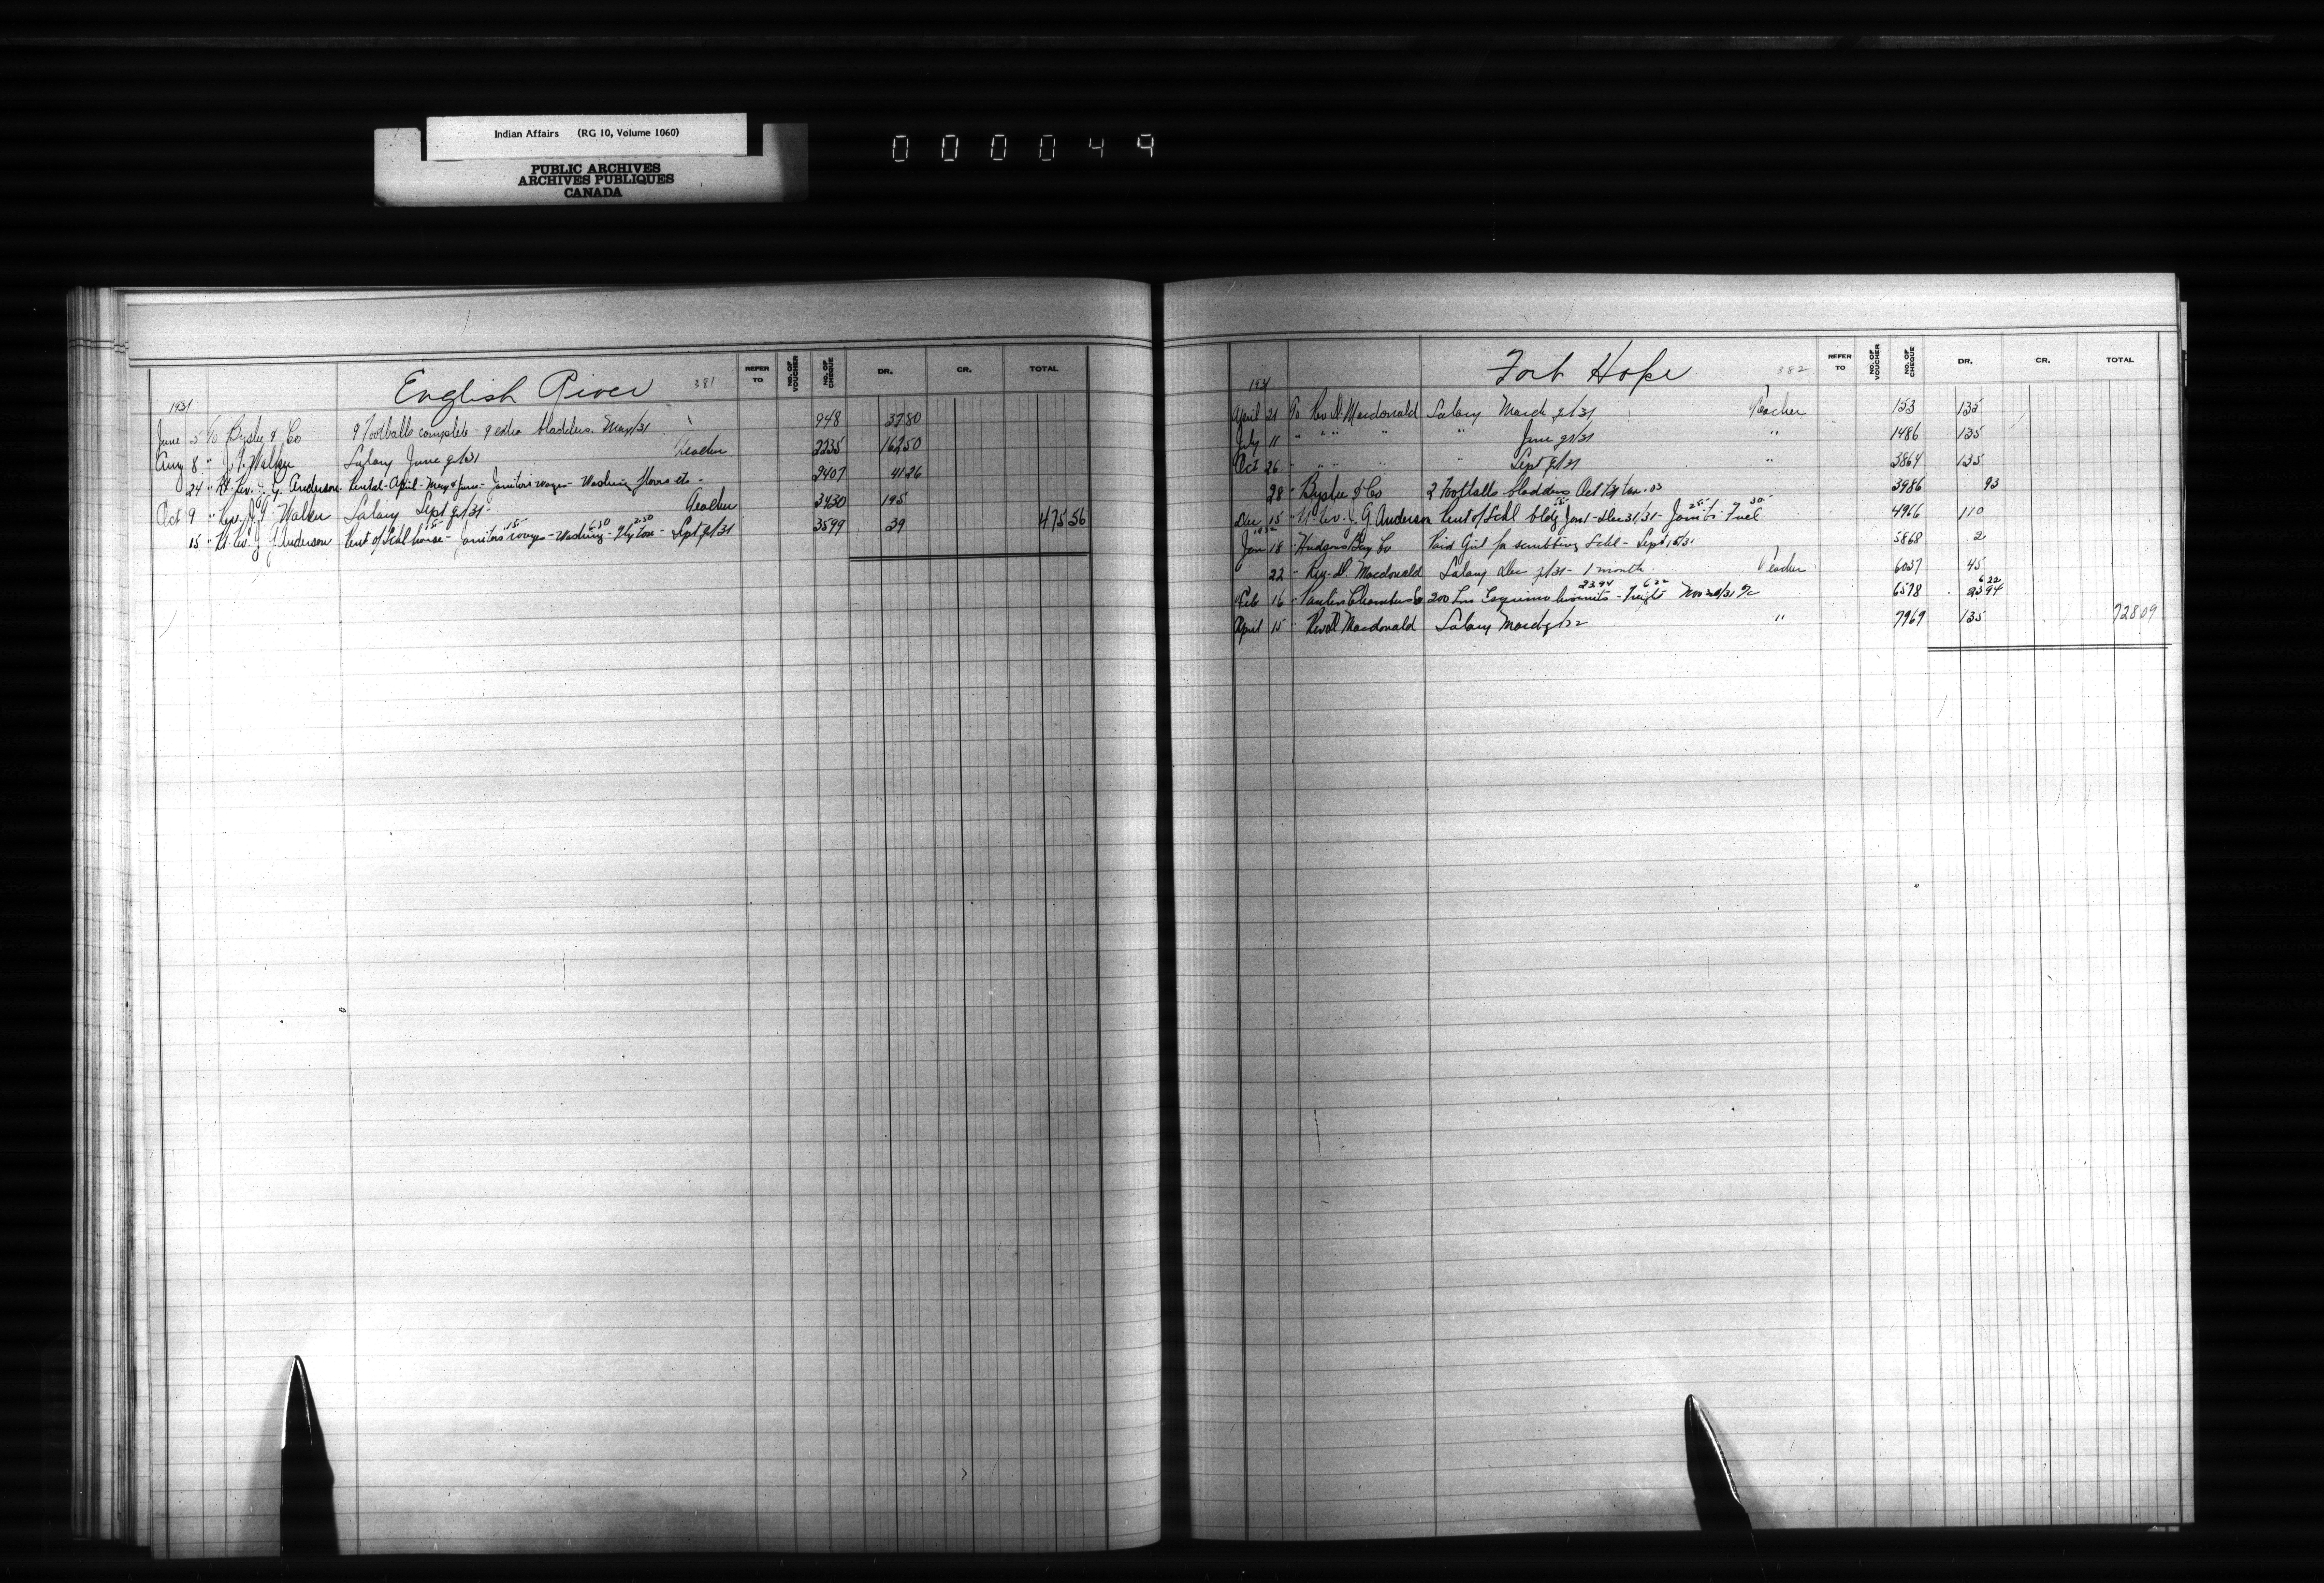 Indian Affairs (RG 10, Volume 1060)
PUBLIC ARCHIVES
ARCHIVES PUBLIQUES
CANADA
000049
English River 381
REFER TO NO. OF VOUCHER NO. OF CHEQUE DR. CR. TOTAL
1931
June 5 To Byshe & Co 9 Footballs complete - 9 extra bladders. May/31 948 37 80
Aug 8 " J. Walker Salary June q/31 Teacher 2235 162 50
24 " Rt. Rev. J. G. Anderson Rental - April - May & June - Janitors wages - Washing floors etc - 2407 41 26
Oct 9 " Rev. J. Walker Salary Sept q/31 - Teacher 3430 195
15 " Rt. Rev. J. G. Anderson Rent of Schl house 15 - Janitors wages 15 - Washing 6 50 - Fly tox 2 50 - Sept q/31 3599 39 475 56
Fort Hope 382
REFER TO NO. OF VOUCHER NO. OF CHEQUE DR. CR. TOTAL
1931
April 21 To Rev D. Macdonald Salary March q/31 Teacher 153 135
July 11 " " " " " June q/31 " 1486 135
Oct 26 " " " " " Sept q/31 " 3864 135
28 " Byshe & Co 2 Footballs bladders Oct 1/31 tax .03 3986 93
Dec 15 " Rt. Rev. J. G Anderson Rent of Schl bldg Jan 1 - Dec 31/31 - Janitor 25 - Fuel 30 4966 110
1932
Jan 18 " Hudsons Bay Co Paid Girl for scrubbing Schl - Sept 15/31 5868 2
22 " Rev. D. Macdonald Salary Dec q/31 - 1 month. Teacher 6037 45
Feb 16 " 200 Lbs biscuits 23.94 - Freight 6 22 6578 6 22 23 94
April 15 " Rev D Macdonald Salary March q/32 " 7969 135 728 09